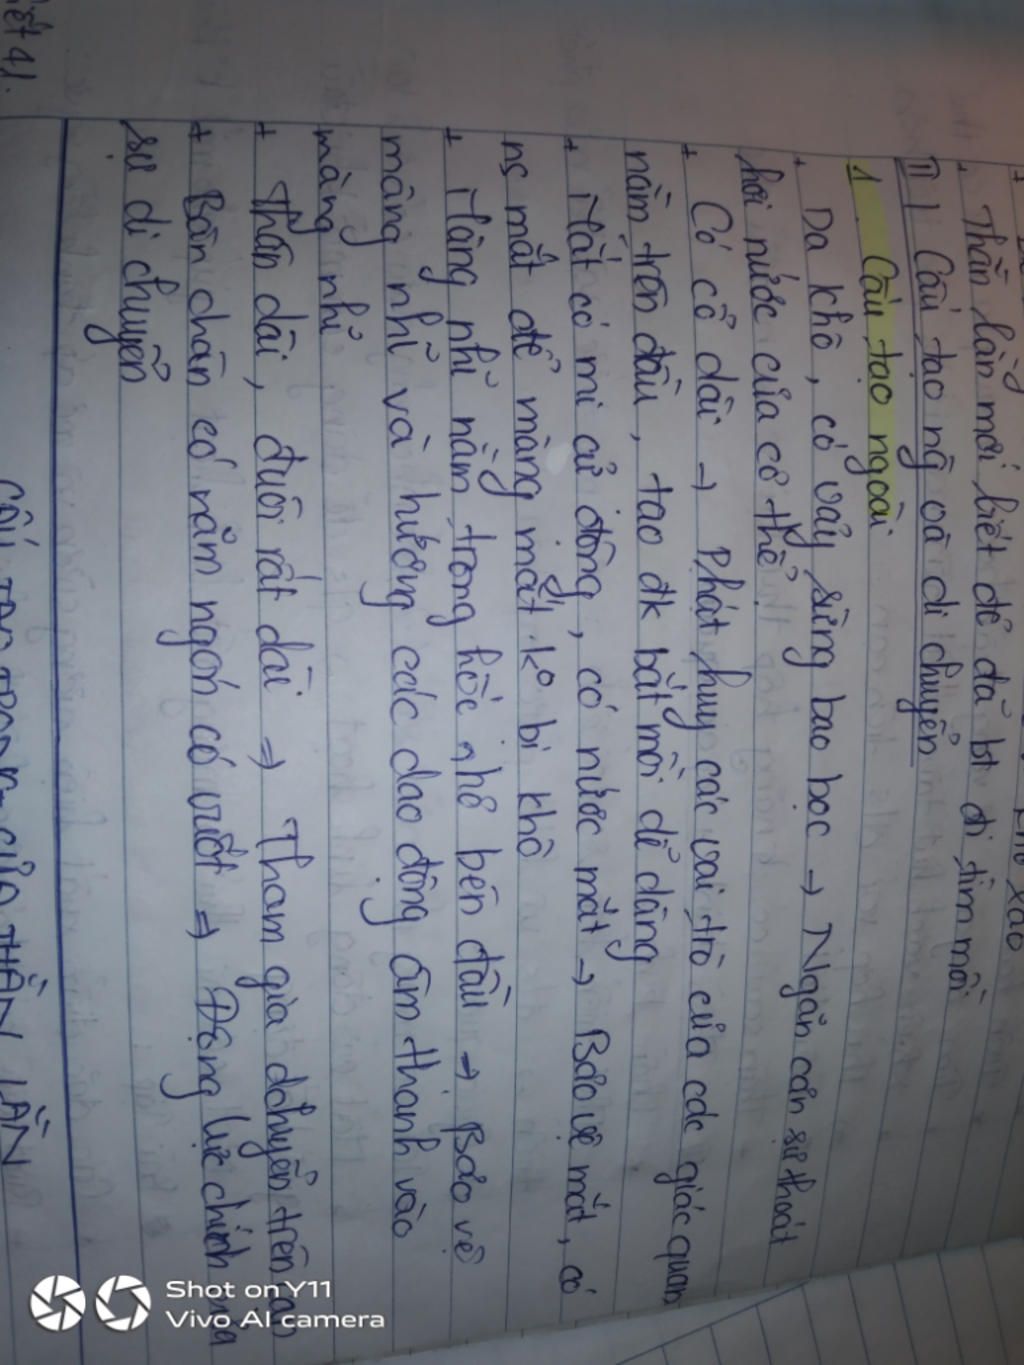 + Thằn lằn mới biết đẻ đã bt đi tìm mồi
II) Cấu tạo ng và di chuyển
1. Cấu tạo ngoài
+ Da khô, có vảy sừng bao bọc → Ngăn cản sự thoát
hơi nước của cơ thể
+ Có cổ dài → Phát huy các vai trò của các giác quan
nằm trên đầu, tạo đk bắt mồi dễ dàng
+ Mắt có mi cử động, có nước mắt → Bảo vệ mắt, có
nc mắt để màng mắt ko bị khô
+ Màng nhĩ nằm trong hốc nhỏ bên đầu → Bảo vệ
màng nhĩ và hướng các dao động âm thanh vào
màng nhĩ
+ Thân dài, đuôi rất dài ⇒ Tham gia dchuyển trên cạn
+ Bàn chân có năm ngón có vuốt ⇒ Động lực chính của
sự di chuyển
Tiết 41.
CẤU TẠO TRONG CỦA THẰN LẰN
Shot on Y11
Vivo AI camera